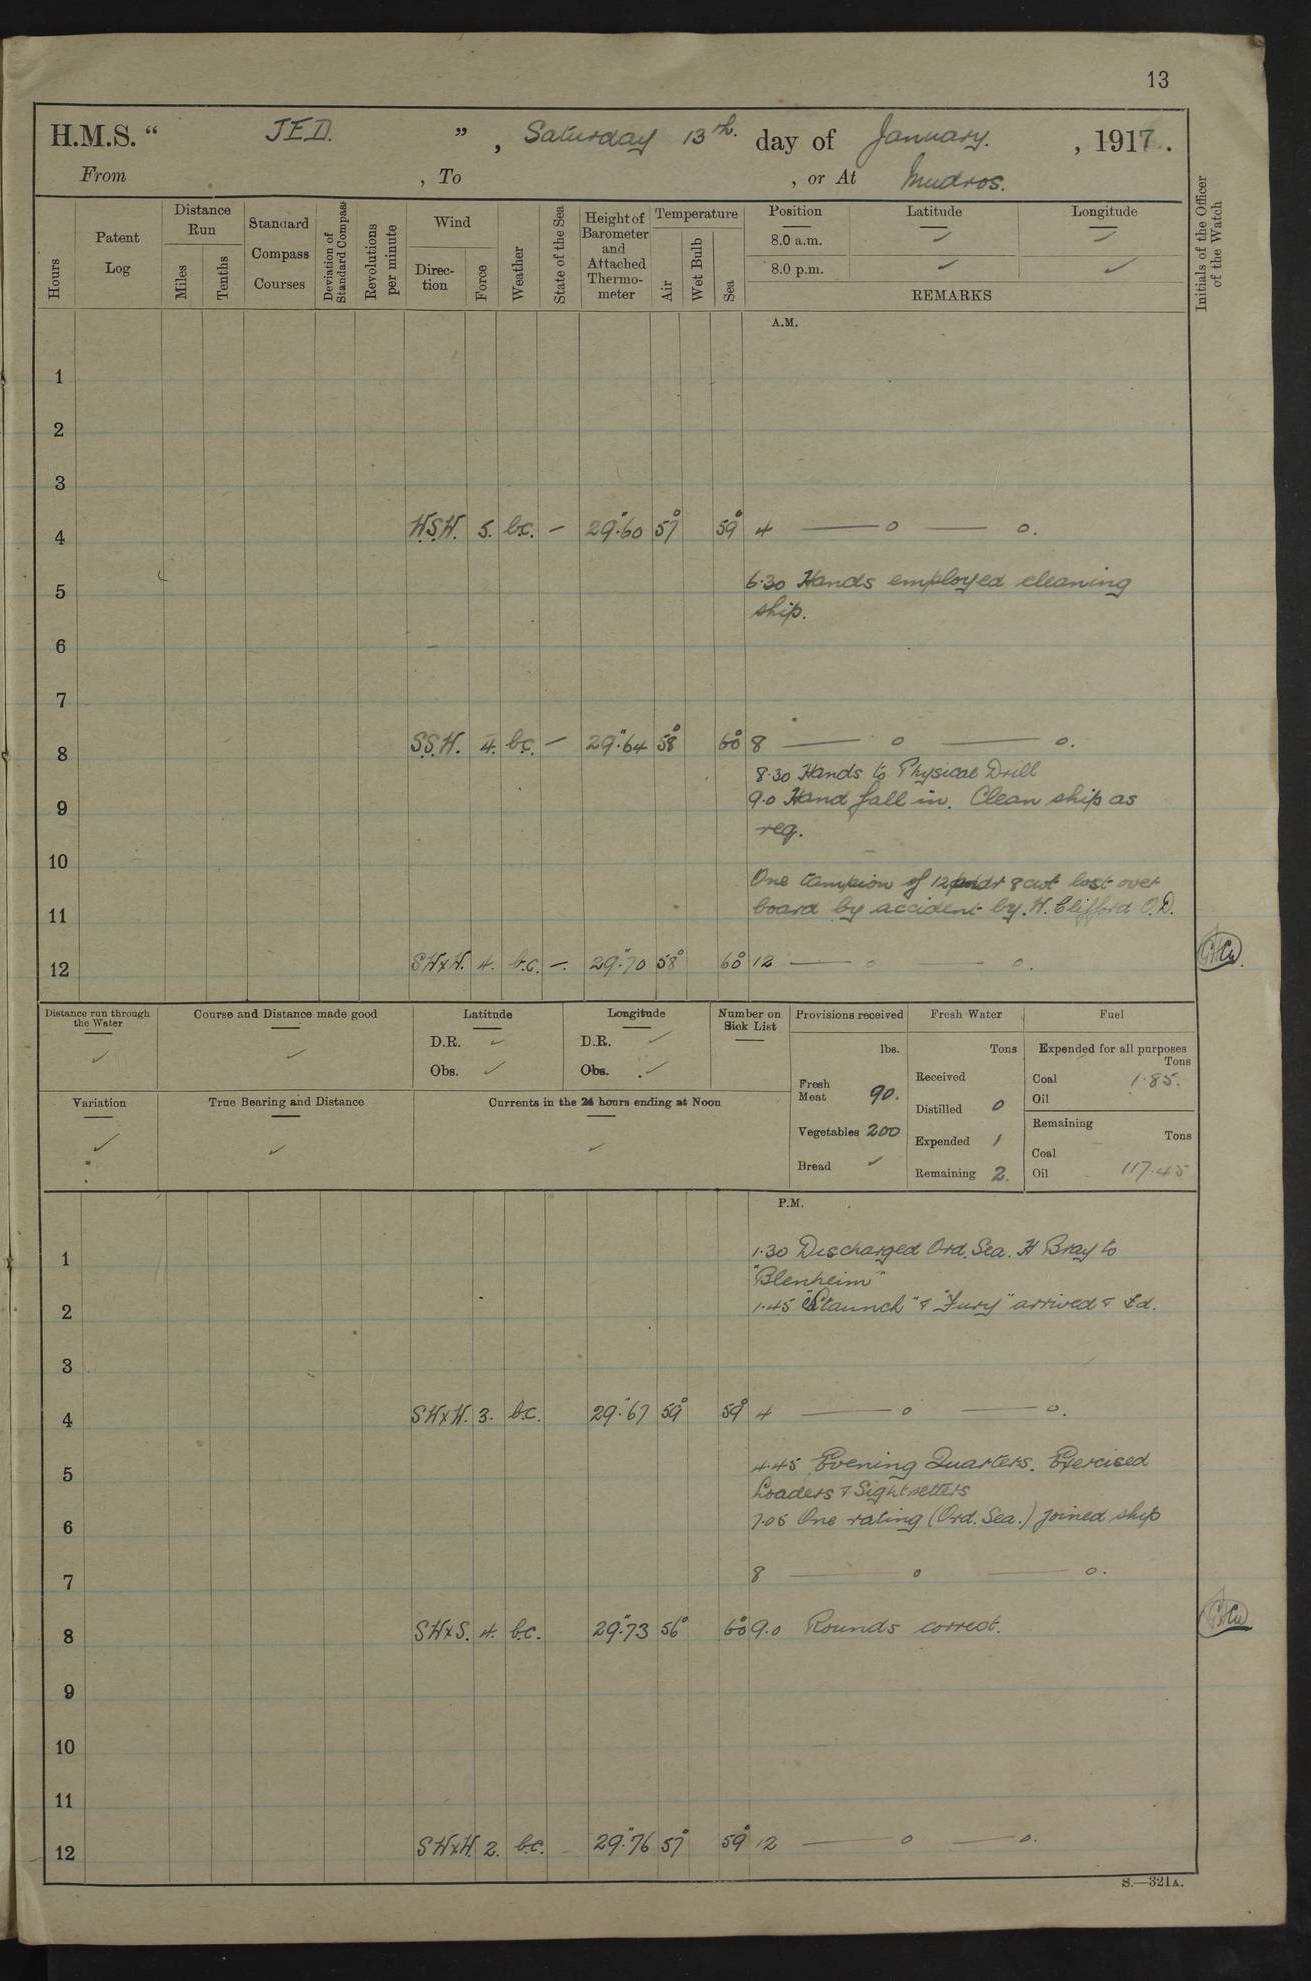 13
H.M.S. " JED. ", Saturday 13th. day of January. , 1917.
From , To , or At Mudros.
Hours
Patent Log
Distance Run
Miles
Tenths
Standard Compass Courses
Deviation of Standard Compass
Revolutions per minute
Wind
Direction
Force
Weather
State of the Sea
Height of Barometer and Attached Thermometer
Temperature
Air
Wet Bulb
Sea
Position Latitude Longitude
8.0 a.m. ✓ ✓
8.0 p.m. ✓ ✓
REMARKS
Initials of the Officer of the Watch
A.M.
1
2
3
4 W.S.W. 5. b.c. — 29".60 57° 59° 4 —— o —— o.
5 6.30 Hands employed cleaning
ship.
6
7
8 S.S.W. 4. b.c. — 29".64 58° 60° 8 —— o —— o.
8.30 Hands to Physical Drill
9 9.0 Hand fall in. Clean ship as
req.
10
One tampion of 12pndr 8cwt lost over
11 board by accident by W. Clifford O.D.
12 SWxW. 4. b.c. —. 29".70 58° 60° 12 —— o —— o.
Distance run through the Water ✓
Course and Distance made good ✓
Latitude
D.R. ✓
Obs. ✓
Longitude
D.R. ✓
Obs. ✓
Number on Sick List
Provisions received
lbs.
Fresh Meat 90.
Vegetables 200
Bread ✓
Fresh Water
Tons
Received
Distilled 0
Expended 1
Remaining 2.
Fuel
Expended for all purposes
Tons
Coal 1.85.
Oil
Remaining
Tons
Coal
Oil 117.45
Variation ✓
True Bearing and Distance ✓
Currents in the 24 hours ending at Noon ✓
P.M.
1 1.30 Discharged Ord. Sea. H Bray to
"Blenheim"
2 1.45 "Staunch" & "Fury" arrived & £d.
3
4 SWxW. 3. b.c. 29".67 59° 59° 4 —— o —— o.
4.45 Evening Quarters. Exercised
5 Loaders & Sightsetters
6 7.05 One rating (Ord. Sea.) joined ship
7 8 —— o —— o.
8 SWxS. 4. b.c. 29".73 56° 60° 9.0 Rounds correct.
9
10
11
12 SWxW. 2. b.c. 29".76 57° 59° 12 —— o —— o.
S.—321A.